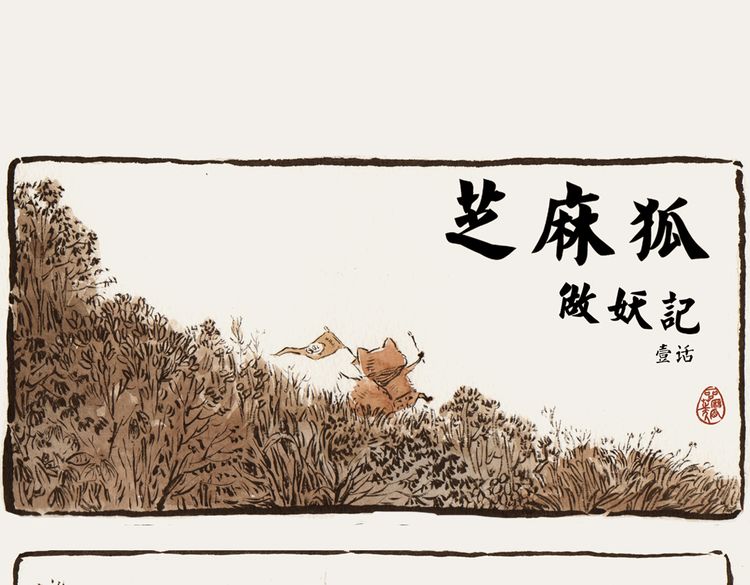 芝麻狐
做妖記
壹话